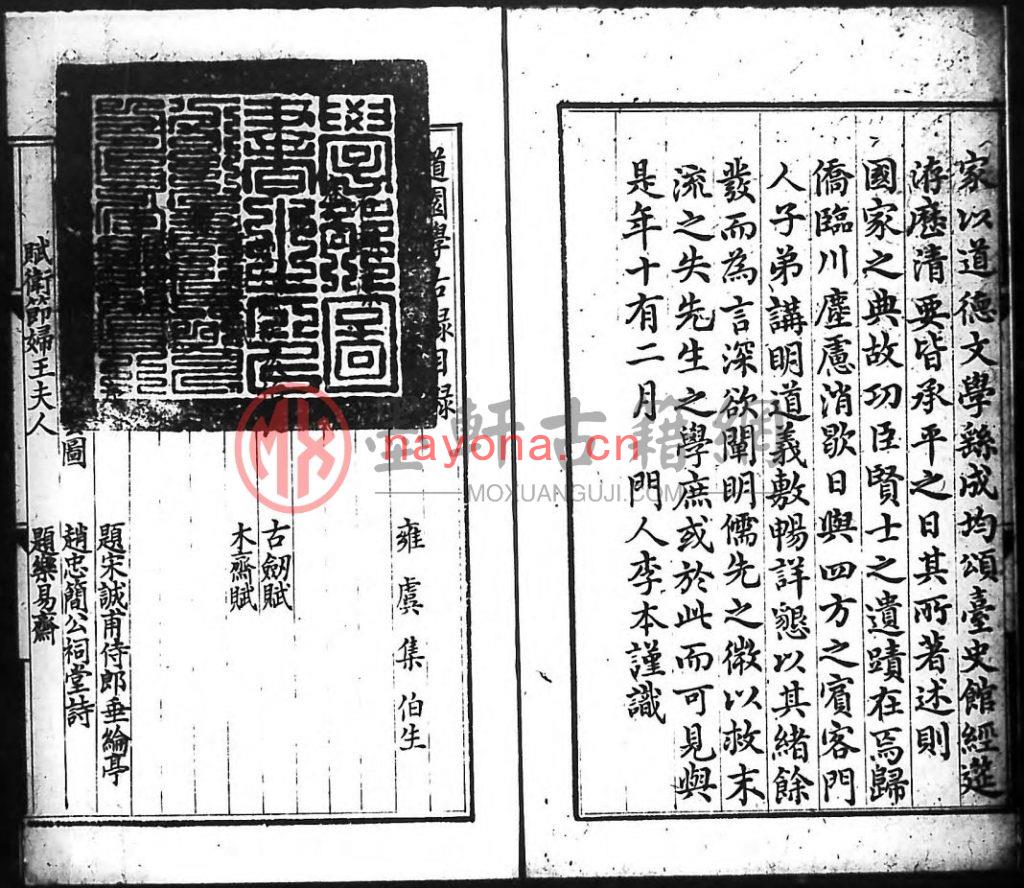 家以道德文學繇成均頌臺史館經筵
洊歷清要皆承平之日其所著述則
國家之典故功臣賢士之遺蹟在焉歸
僑臨川塵慮消歇日與四方之賓客門
人子弟講明道義敷暢詳懇以其緒餘
發而為言深欲闡明儒先之微以救末
流之失先生之學庶或於此而可見與
是年十有二月門人李本謹識
道園學古錄目錄
雍虞集伯生
古劒賦
木齋賦
題宋誠甫侍郎垂綸亭
圖
趙忠簡公祠堂詩
賦衛節婦王夫人
題欒易齋
墨軒古籍網
nayona.cn
MOXUANGUJI.COM